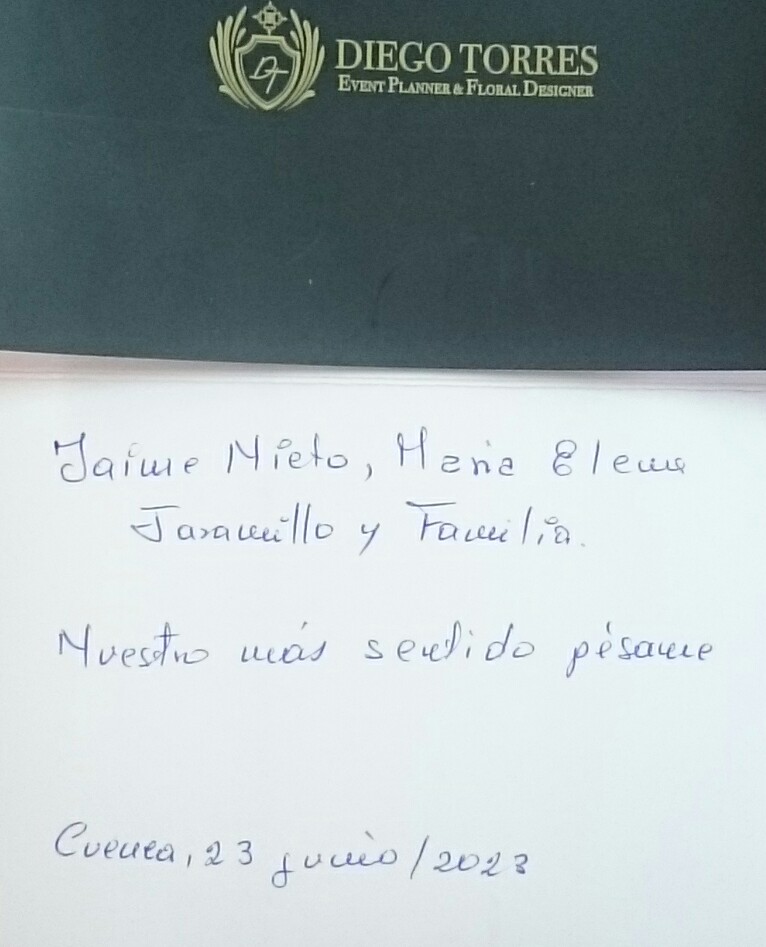 DT
DIEGO TORRES
EVENT PLANNER & FLORAL DESIGNER
Jaime Nieto, Maria Elena
Jaramillo y Familia.
Nuestro más sentido pésame
Cuenca, 23 junio/2023